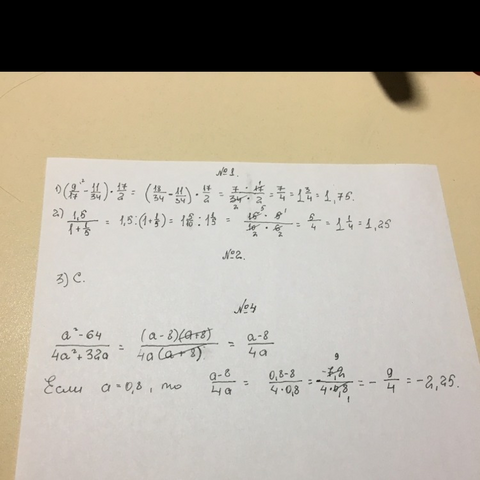 №1.
1) (9/17² - 11/34) · 17/2 = (18/34 - 11/34) · 17/2 = 7 · 17/34₂ · 2 = 7/4 = 1 3/4 = 1,75.
2) 1,5/1+1/5 = 1,5:(1+1/5) = 1 5/10 : 1 1/5 = 15⁵ · 5¹/10₂ · 6₂ = 5/4 = 1 1/4 = 1,25
№2.
3) C.
№4
a²-64/4a²+32a = (a-8)(a+8)/4a(a+8) = a-8/4a
Если a=0,8, то a-8/4a = 0,8-8/4·0,8 = -7,2⁹/4·0,8₁ = - 9/4 = -2,25.